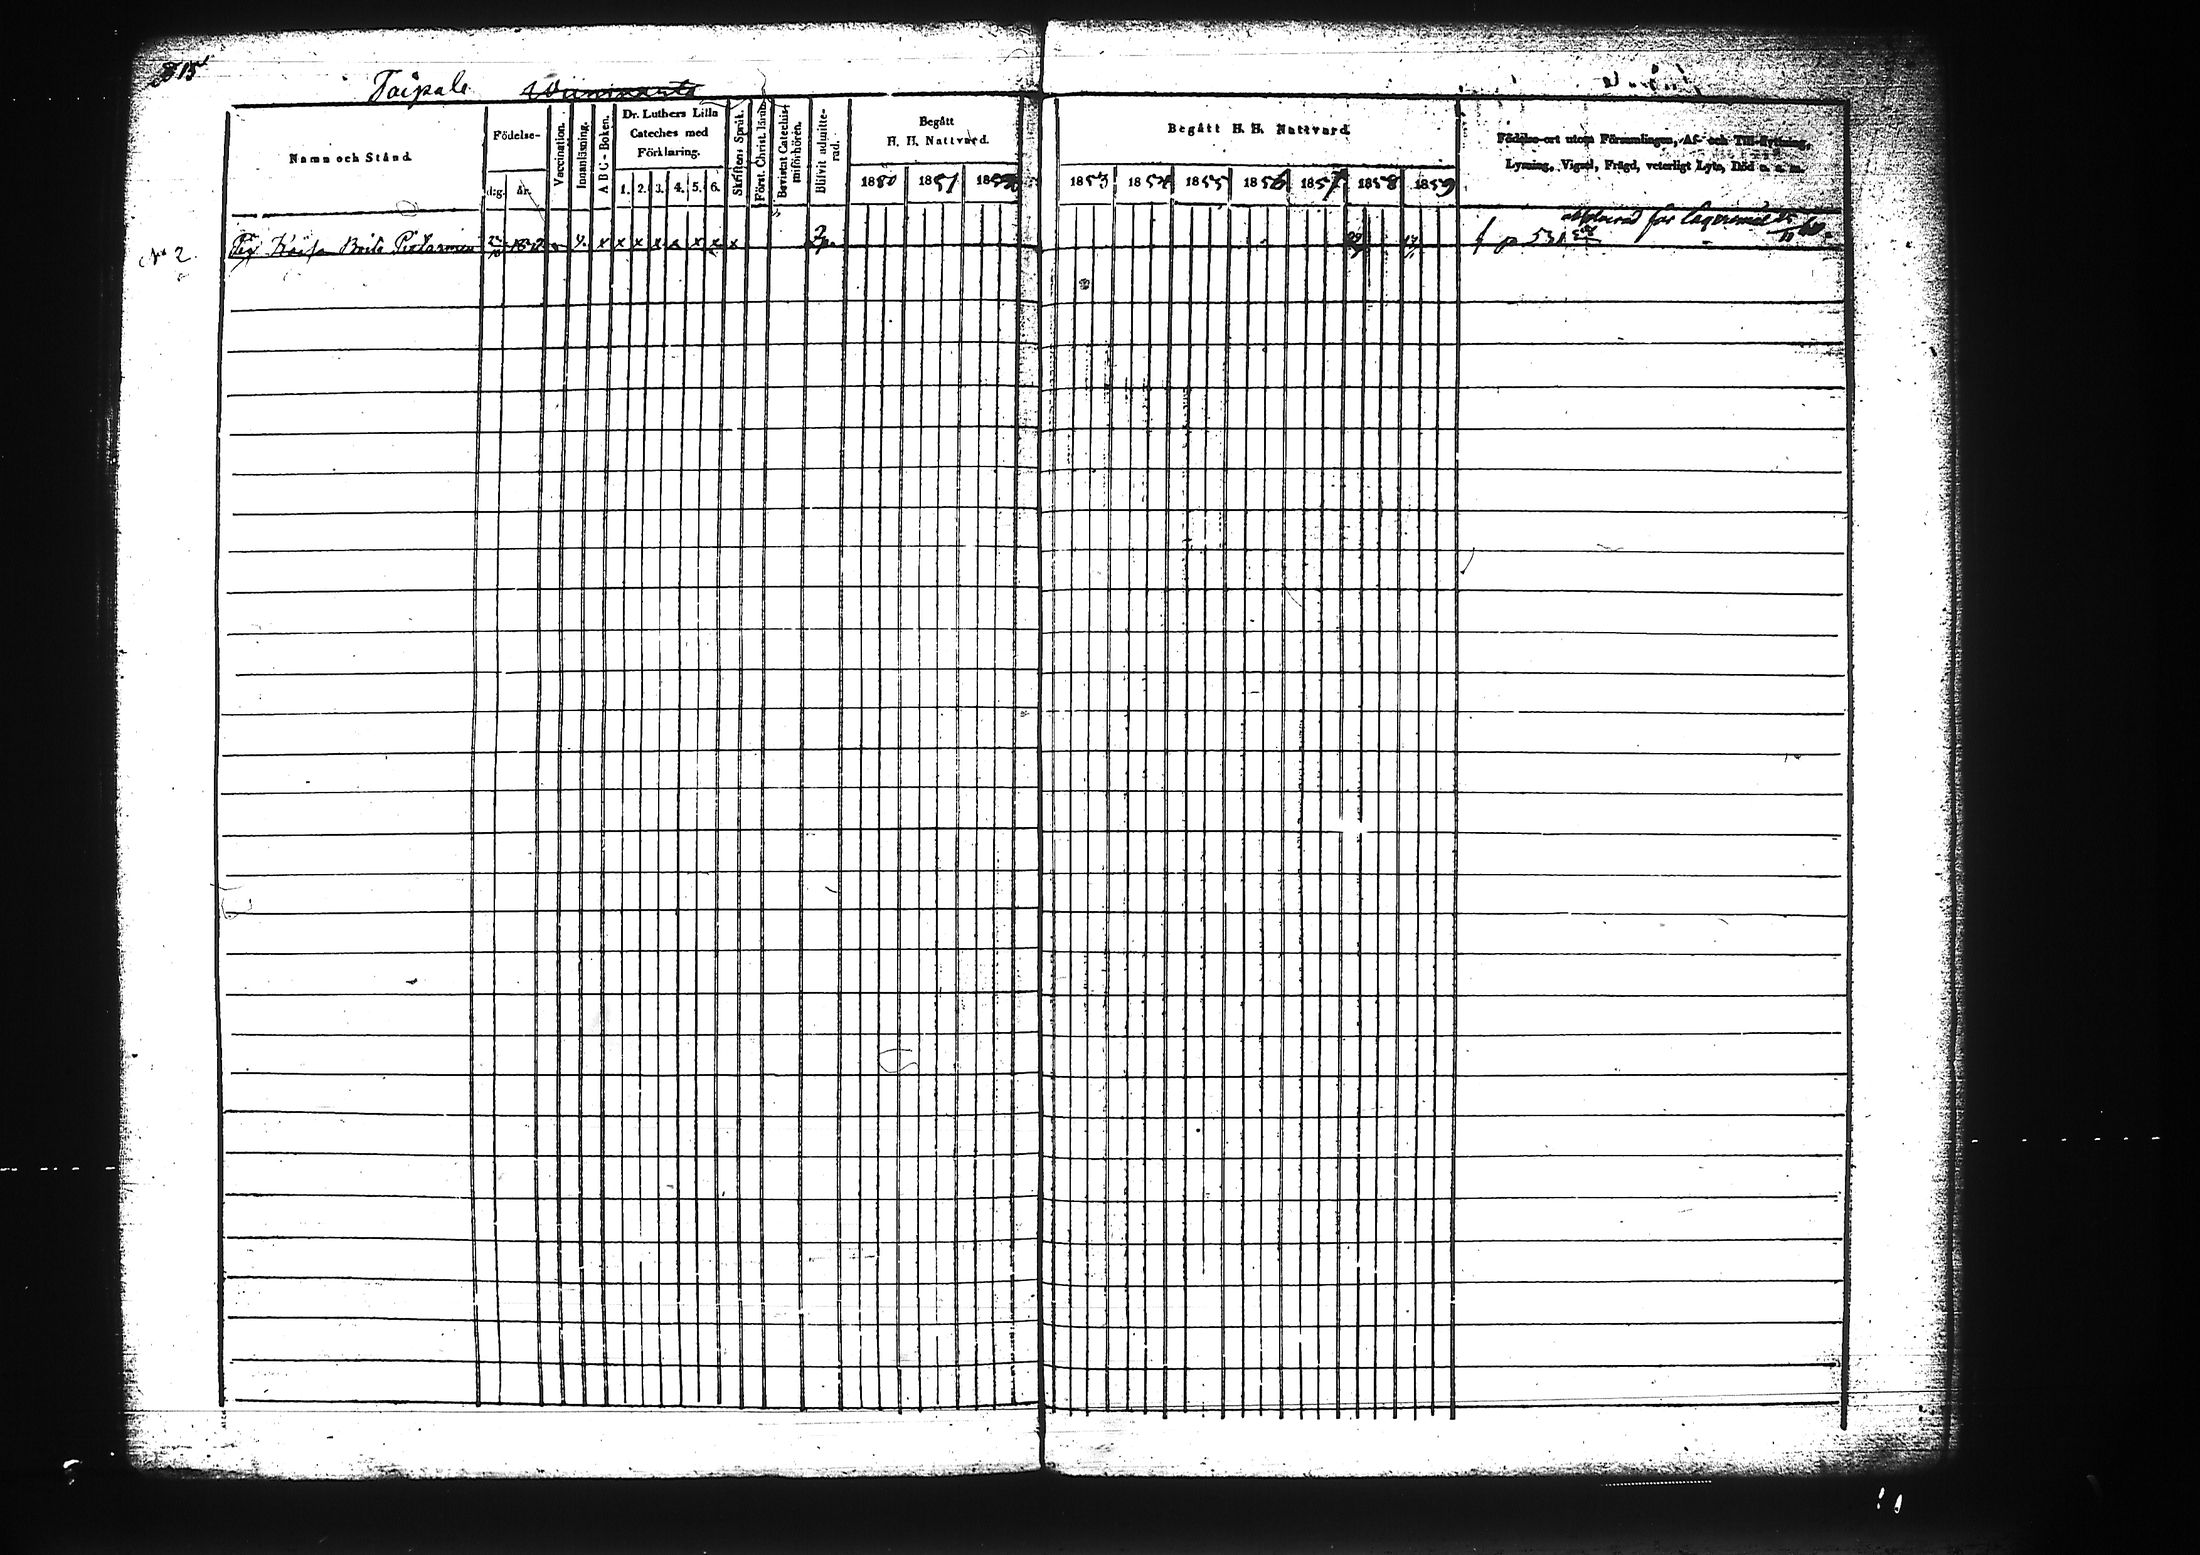 515
Taipale
Namn och Stånd.
Födelse-
dag. år.
Vaccination.
Innanläsning.
A B C - Boken.
Dr. Luthers Lilla
Cateches med
Förklaring.
1. 2. 3. 4. 5. 6.
Skriftens Språk.
Först. Christ. lärdn
Bevistat Catechis-
misförhören.
Blifvit admitte-
rad.
Begått
H. H. Nattvard.
1850 1851 1852
Begått H. H. Nattvard.
1853 1854 1855 1856 1857 1858 1859
Födelse-ort utom Församlingen, Af- och Till-flyttning,
Lysning, Vigsel, Frägd, veterligt Lyte, Död o. s. m.
för
No 2 Pig Kaisa Brita x x x x x x x x
p 531